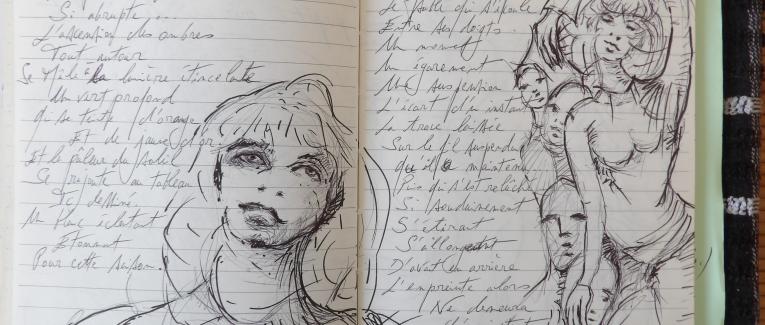 Si abrupte...
L'ascension des ombres
Tout autour
Se mêle à la lumière étincelante
Un vert profond
qui se teinte d'orange
Et de jaune d'or
Et la pâleur du soleil
Se au tableau
Ici
Un blanc éclatant
Etonnant
Pour cette saison.
Le sable qui s'écoule
Entre ses doigts.
Un moment
Un égarement
Une suspension
L'écart d'un instant
La trace laissée
Sur le fil suspendu
qu'il a maintenu
Puis qui s'est relâché
Si soudainement
S'étirant
S'allongeant
D'avant en arrière
L'empreinte alors
Ne demeura